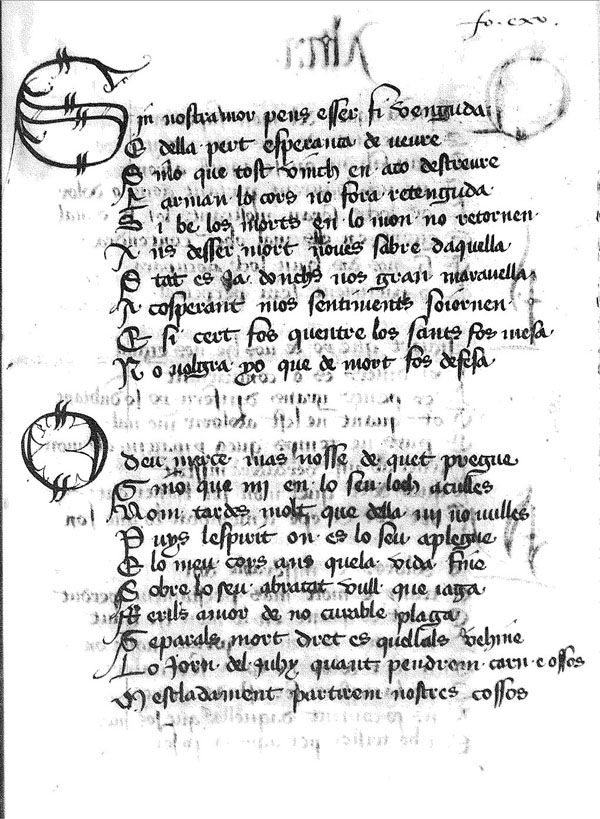 fo. cxv.
Sin nostramor pens esser fi venguda
E della pert esperança de veure
Sino que tost vinch en aço descreure
Larman lo cors no fora retenguda
Si be los morts en lo mon no retornen
Ans desser mort noves sabre daquella
Stat es Ja donchs nos gran maravella
Acosperant mos sentiments soiornen
E si cert fos quentre los sants fos mesa
No volgra yo que de mort fos defesa
O deu merce mas nosse de quet pregue
Sino que mi en lo seu loch aculles
Nom tardes molt que della mi no vulles
Puys lespirit on es lo seu aplegue
E lo meu cors ans quela vida fine
Sobre lo seu abraçat vull que iaga
Ferils amor de no curable plaga
Separals mort dret es quellals vehine
Lo Jorn del Juhy quant pendrem carn e ossos
Mescladament partirem nostres cossos